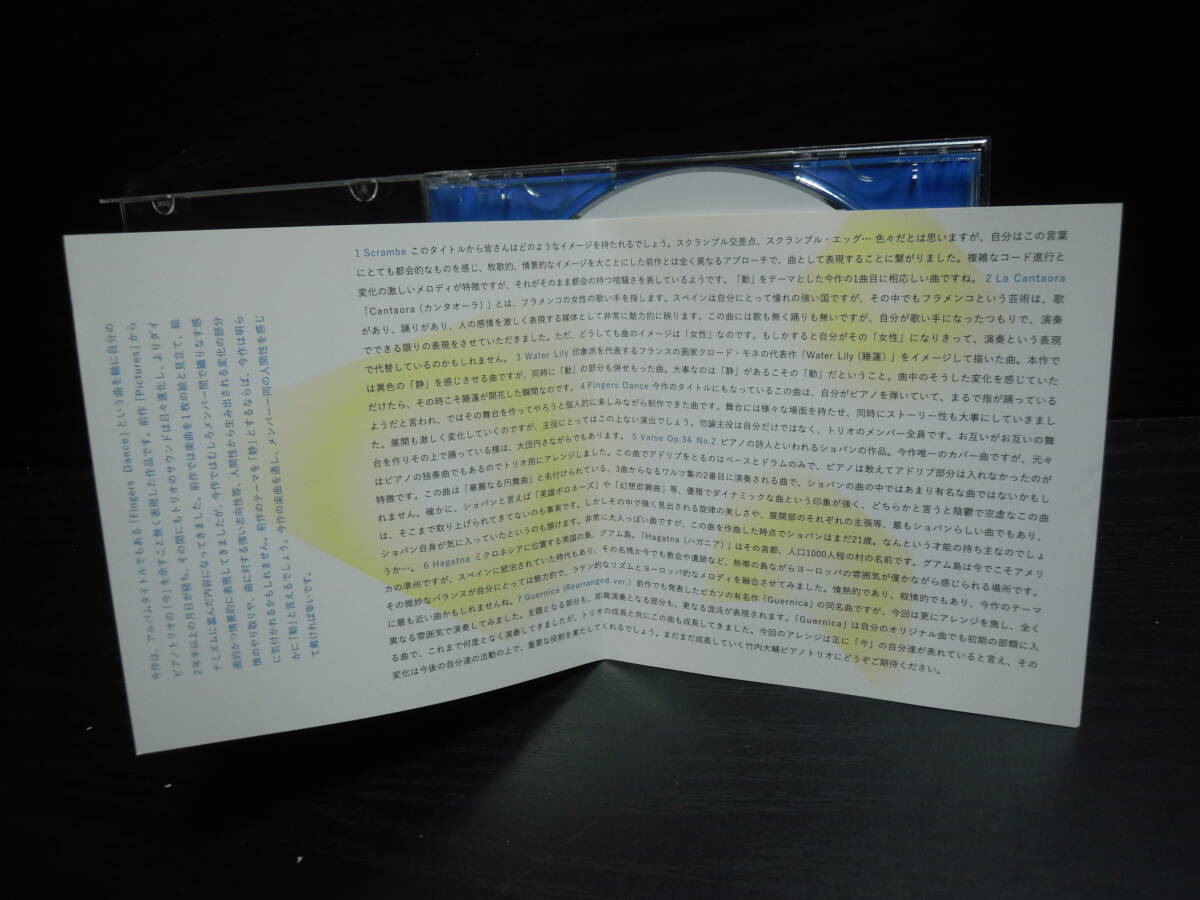 今作は、アルバムタイトルでもある「Fingers Dance」という曲を軸に自分の
ピアノトリオの「今」を余すこと無く表現した作品です。前作「Pictures」から
2年半以上の月日が経ち、その間にもトリオのサウンドは日々進化し、よりダイ
ナミズムに富んだ内容になってきました。前作では楽曲を1枚の絵と見立て、絵
画的かつ情景的に表現してきましたが、今作ではむしろメンバー間で織りなす感
情のやり取りや、曲に対する強い志向性等、人間性から生み出される変化の部分
に気付かれるかもしれません。前作のテーマを「静」とするならば、今作は明ら
かに「動」と言えるでしょう。今作の楽曲を通し、メンバー一同の人間性を感じ
て戴ければ幸いです。
1 Scrambe このタイトルから皆さんはどのようなイメージを持たれるでしょう。スクランブル交差点、スクランブル・エッグ… 色々だとは思いますが、自分はこの言葉
にとても都会的なものを感じ、牧歌的、情景的なイメージを大ことにした前作とは全く異なるアプローチで、曲として表現することに繋がりました。複雑なコード進行と
変化の激しいメロディが特徴ですが、それがそのまま都会の持つ喧騒さを表しているようです。「動」をテーマとした今作の1曲目に相応しい曲ですね。 2 La Cantaora
「Cantaora（カンタオーラ）」とは、フラメンコの女性の歌い手を指します。スペインは自分にとって憧れの強い国ですが、その中でもフラメンコという芸術は、歌
があり、踊りがあり、人の感情を激しく表現する媒体として非常に魅力的に映ります。この曲には歌も無く踊りも無いですが、自分が歌い手になったつもりで、演奏
でできる限りの表現をさせていただきました。ただ、どうしても曲のイメージは「女性」なのです。もしかすると自分がその「女性」になりきって、演奏という表現
で代替しているのかもしれません。 3 Water Lily 印象派を代表するフランスの画家クロード・モネの代表作「Water Lily（睡蓮）」をイメージして描いた曲。本作で
は異色の「静」を感じさせる曲ですが、同時に「動」の部分も併せもった曲。大事なのは「静」があるこその「動」だということ。曲中のそうした変化を感じていた
だけたら、その時こそ睡蓮が開花した瞬間なのです。 4 Fingers Dance 今作のタイトルにもなっているこの曲は、自分がピアノを弾いていて、まるで指が踊っている
ようだと思われ、ではその舞台を作ってやろうと個人的に楽しみながら制作できた曲です。舞台には様々な場面を持たせ、同時にストーリー性も大事にしていきまし
た。展開も激しく変化していくのですが、主役にとってはこの上ない演出でしょう。勿論主役は自分だけではなく、トリオのメンバー全員です。お互いがお互いの舞
台を作りその上で踊っている様は、大団円さながらでもあります。 5 Valse Op.34 No.2 ピアノの詩人といわれるショパンの作品。今作唯一のカバー曲ですが、元々
はピアノの独奏曲でもあるのでトリオ用にアレンジしました。この曲でアドリブをとるのはベースとドラムのみで、ピアノは敢えてアドリブ部分は入れなかったのが
特徴です。この曲は「華麗なる円舞曲」と名付けられている、3曲からなるワルツ集の2番目に演奏される曲で、ショパンの曲の中ではあまり有名な曲ではないかもし
れません。確かに、ショパンと言えば「英雄ポロネーズ」や「幻想即興曲」等、優雅でダイナミックな曲という印象が強く、どちらかと言うと陰鬱で空虚なこの曲
は、そこまで取り上げられてきてないのも事実です。しかしその中で強く見出される旋律の美しさや、展開部のそれぞれの主張等、最もショパンらしい曲でもあり、
ショパン自身が気に入っていたというのも頷けます。非常に大人っぽい曲ですが、この曲を作曲した時点でショパンはまだ21歳。なんという才能の持ち主なのでしょ
うか…。 6 Hagatna ミクロネシアに位置する南国の島、グアム島。「Hagatna（ハガニア）」はその首都、人口1000人程の村の名前です。グアム島は今でこそアメリ
カの準州ですが、スペインに統治されていた時代もあり、その名残か今でも教会や遺跡など、熱帯の島ながらヨーロッパの雰囲気が僅かながら感じられる場所です。
その微妙なバランスが自分にとっては魅力的で、ラテン的なリズムとヨーロッパ的なメロディを融合させてみました。情熱的であり、叙情的でもあり、今作のテーマ
に最も近い曲かもしれませんね。 7 Guernica (Rearranged ver.) 前作でも発表したピカソの有名作「Guernica」の同名曲ですが、今回は更にアレンジを施し、全く
異なる雰囲気で演奏してみました。主題となる部分も、即興演奏となる部分も、更なる混沌が表現されます。「Guernica」は自分のオリジナル曲でも初期の部類に入
る曲で、これまで何度となく演奏してきましたが、トリオの成長と共にこの曲も成長してきました。今回のアレンジは正に「今」の自分達が表れていると言え、その
変化は今後の自分達の活動の上で、重要な役割を果たしてくれるでしょう。まだまだ成長していく竹内大輔ピアノトリオにどうぞご期待ください。